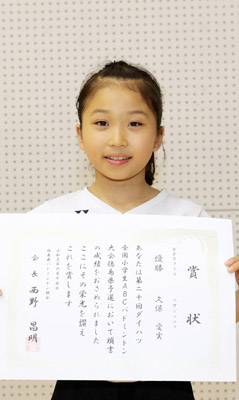 賞状
優勝
久保 愛実
あなたは第二十回ダイハツ
全国小学生ABCバドミントン
大会徳島県予選において頭書
の成績をおさめられました
ここにその栄光を讃え
これを賞します
会長 西野 昌明